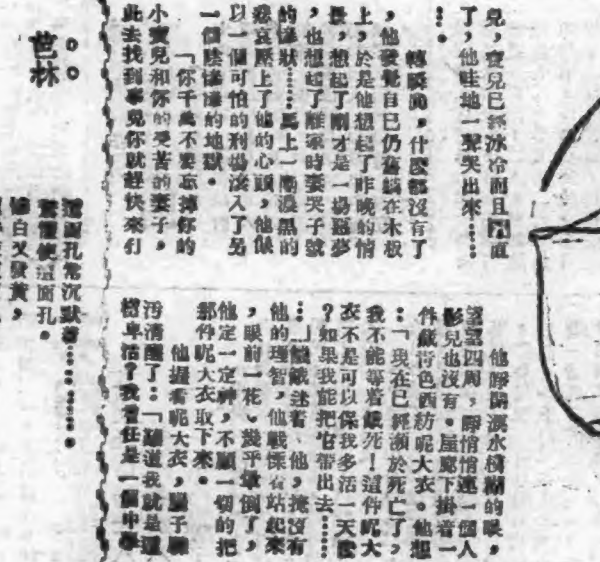 兒，寶兒已經冰冷而且直
了，他哇地一聲哭出來……
…。
轉瞬間，什麼都沒有了
，他發覺自已仍舊躺在木板
上，於是他想起了昨晚的情
景，想起了剛才是一場惡夢
，也想起了離家時妻哭子號
的慘狀……馬上一團濃黑的
悲哀壓上了他的心頭，他像
以一個可怕的刑場淡入了另
一個陰慘慘的地獄。
「你千萬不要忘掉你的
小寶兒和你的受苦的妻子，
此去找到事兒你就趕快來打
他睜開淚水模糊的眼，
望望四周，靜悄悄連一個人
影兒也沒有。屋廊下掛着一
件藏青色西紡呢大衣。他想
：「現在已經瀕於死亡了，
我不能等着餓死！這件呢大
衣不是可以保我多活一天麼
？如果我能把它帶出去……
…」飢餓迷着他，掩沒有
他的理智，他戰慄着站起來
，眼前一花。幾乎暈倒了，
他定一定神，不顧一切的把
那件呢大衣取下來。
他握着呢大衣，腦子
清醒了：「難道我就是這
樣卑活？我曾任是一個中學
世林
這面孔常沉默着…………。
驚懼使這面孔。
白又發黃，